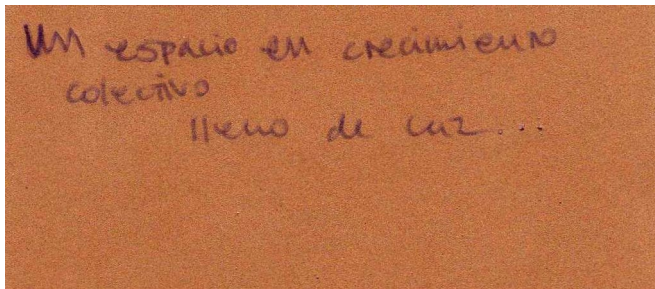 Un espacio en crecimiento
colectivo
lleno de luz...